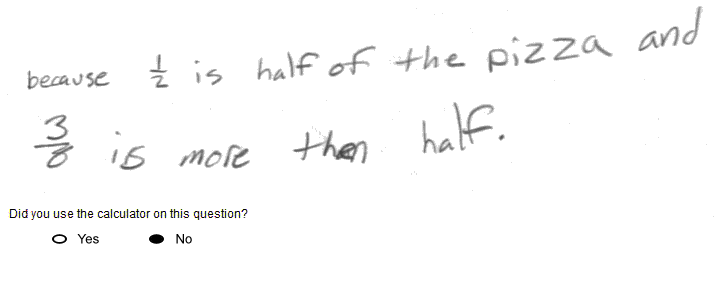 because 1/2 is half of the pizza and
3/8 is more then half.
Did you use the calculator on this question?
Yes No